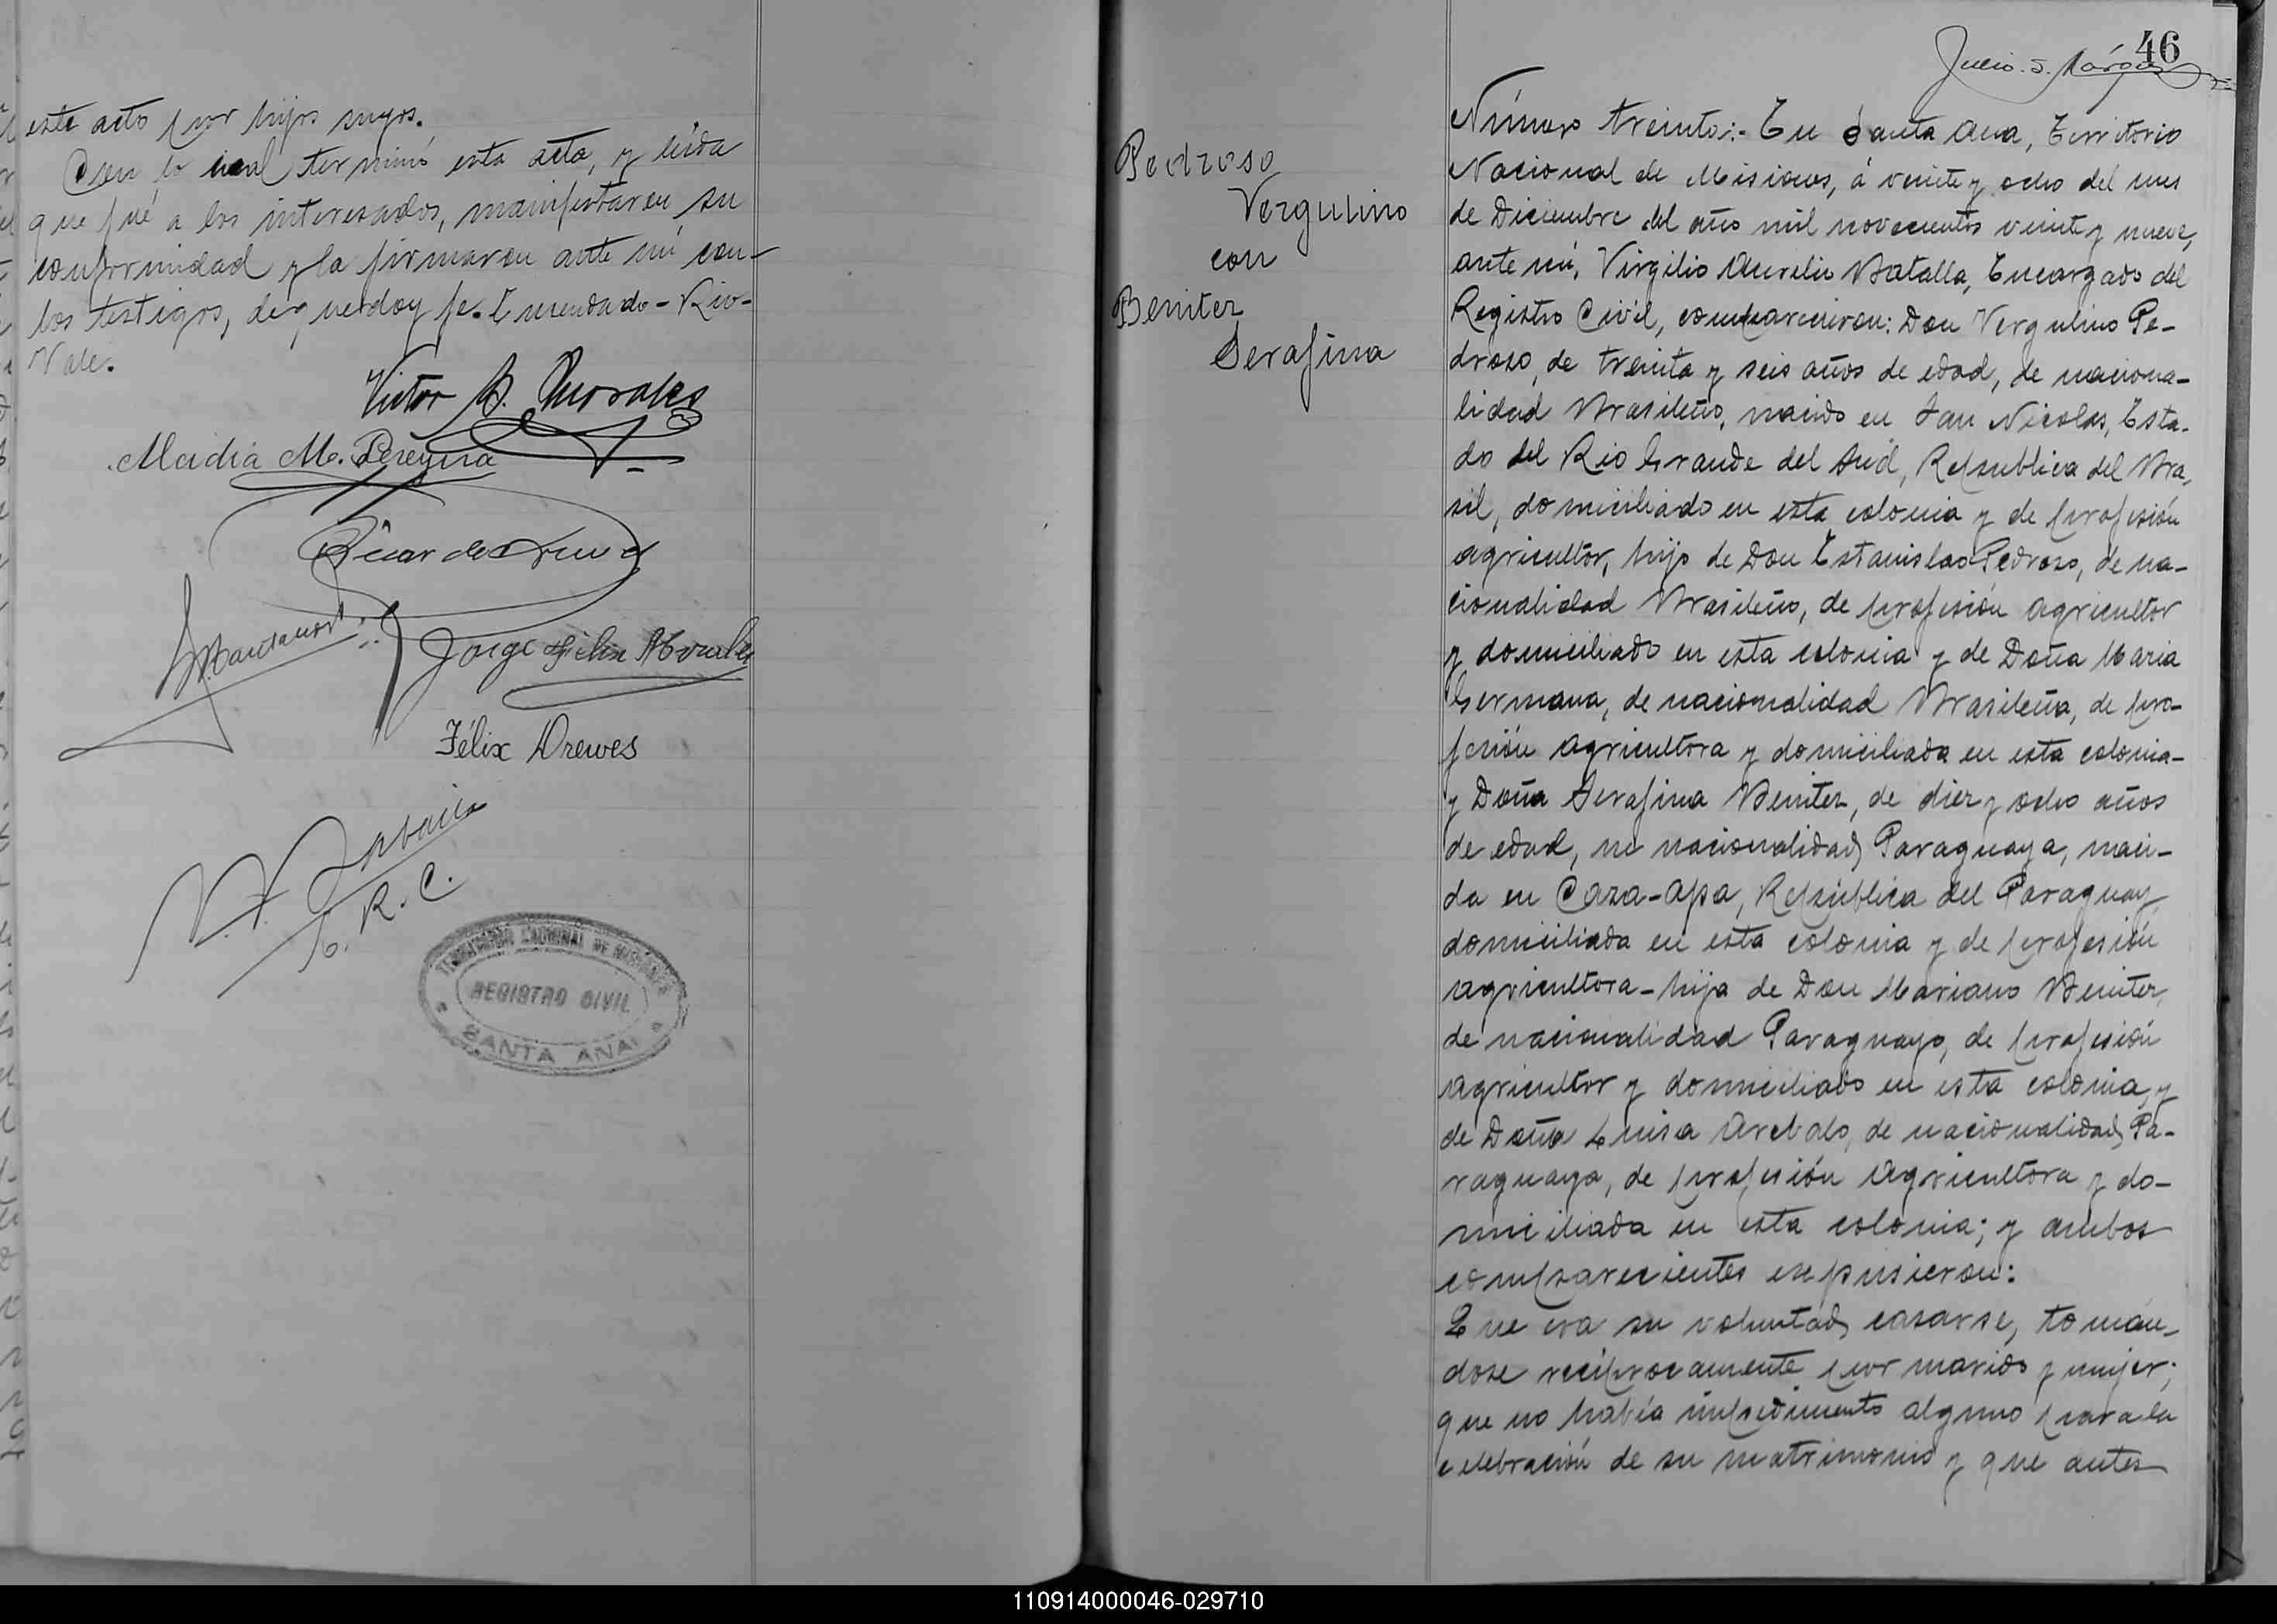 este acto por hijos suyos.
Con lo cual terminó esta acta, y leída
que fué a los interesados, manifestaron su
conformidad y la firmaron ante mí con
los testigos, de que doy fe. Enmendado - Rio -
Vale.
Victor B. Morales
M. Pereyra
Jorge Félix Morales
Félix Drewes
E. R. C.
TERRITORIO NACIONAL DE MISIONES
REGISTRO CIVIL
SANTA ANA
46
Julio. J. Márquez
Pedroso
Vergulino
con
Benitez
Serafina
Número treinta:- En Santa Ana, Territorio
Nacional de Misiones, á veinte y ocho del mes
de Diciembre del año mil novecientos veinte y nueve,
ante mí, Virgilio Aurelio Batalla, Encargado del
Registro Civil, comparecieron: Don Vergulino Pe-
droso, de treinta y seis años de edad, de naciona-
lidad Brasileño, nacido en San Nicolas, Esta-
do del Rio Grande del Sud, Republica del Bra-
sil, domiciliado en esta colonia y de profesión
agricultor, hijo de Don Estanislao Pedroso, de na-
cionalidad Brasileño, de profesión agricultor
y domiciliado en esta colonia y de Doña Maria
Germana, de nacionalidad Brasileña, de pro-
fesión agricultora y domiciliada en esta colonia-
y Doña Serafina Benitez, de diez y ocho años
de edad, de nacionalidad Paraguaya, naci-
da en Caza-Apa, República del Paraguay,
domiciliada en esta colonia y de profesión
agricultora - hija de Don Mariano Benitez,
de nacionalidad Paraguayo, de profesión
agricultor y domiciliado en esta colonia, y
de Doña Luisa Arebalo, de nacionalidad Pa-
raguaya, de profesión agricultora y do-
miciliada en esta colonia; y ambos
comparecientes expusieron:
Que era su voluntad casarse, tomán-
dose recíprocamente por marido y mujer;
que no había impedimento alguno para la
celebración de su matrimonio y que antes
110914000046-029710